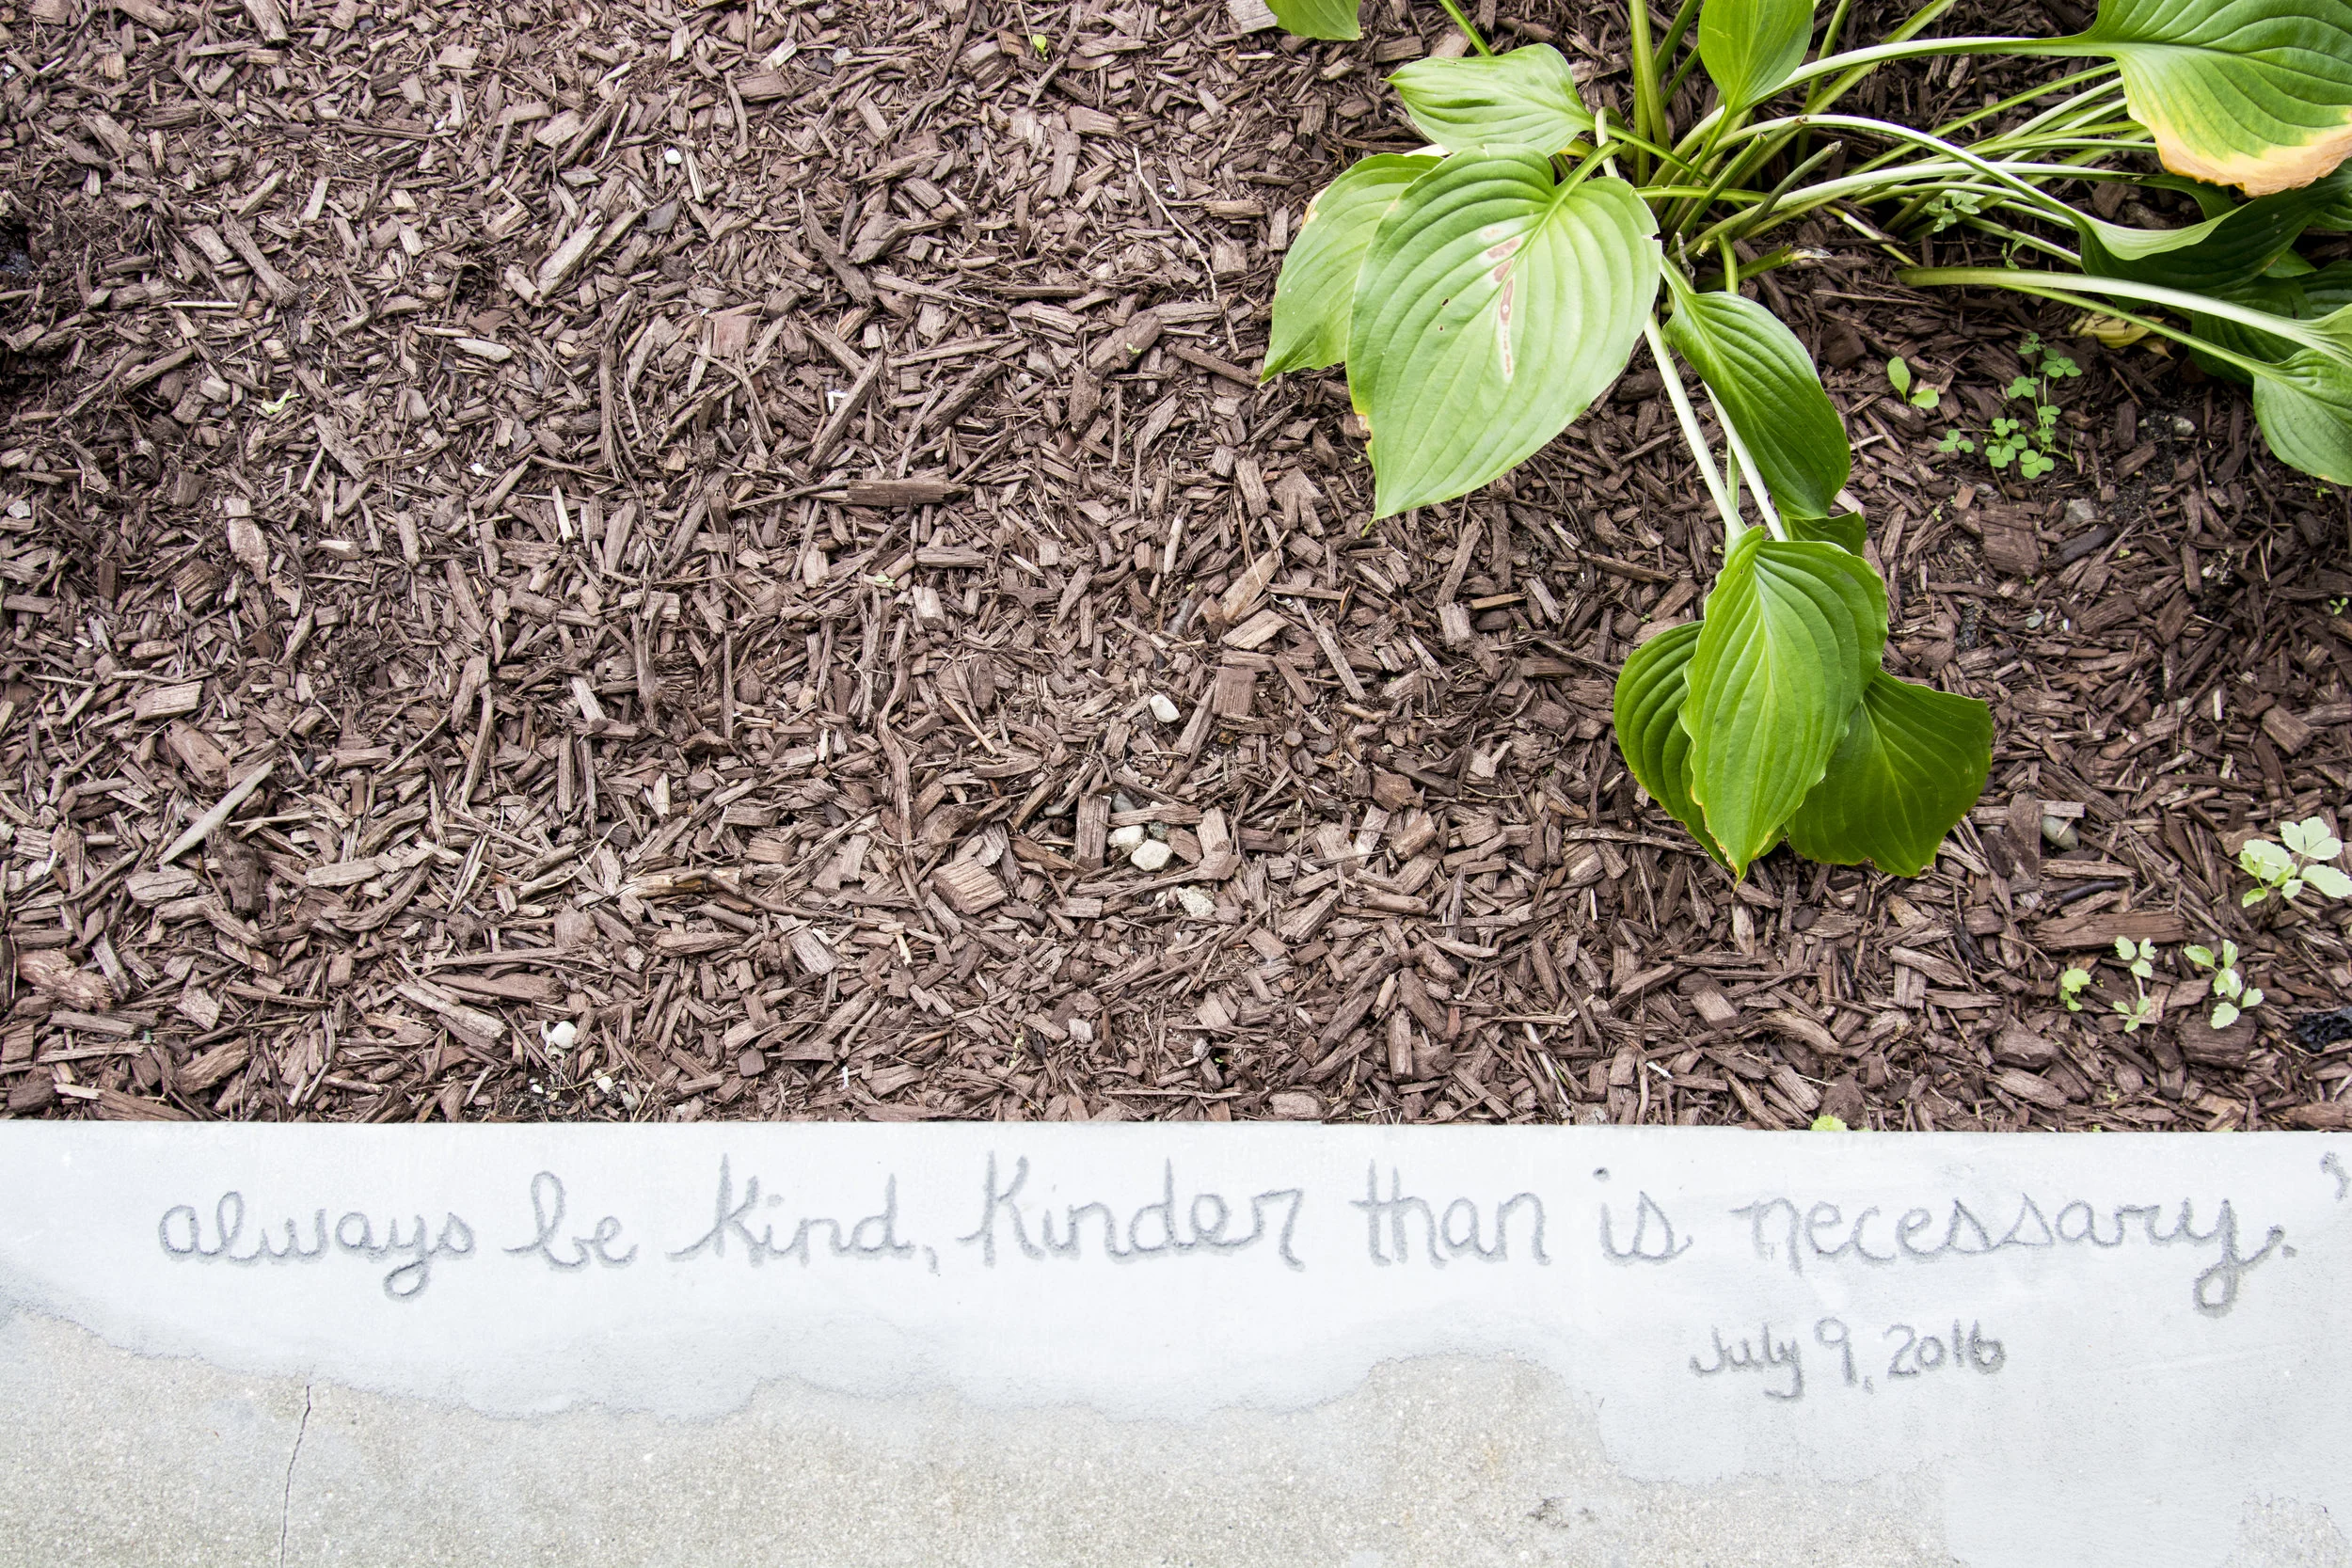 always be kind, kinder than is necessary.
July 9, 2016